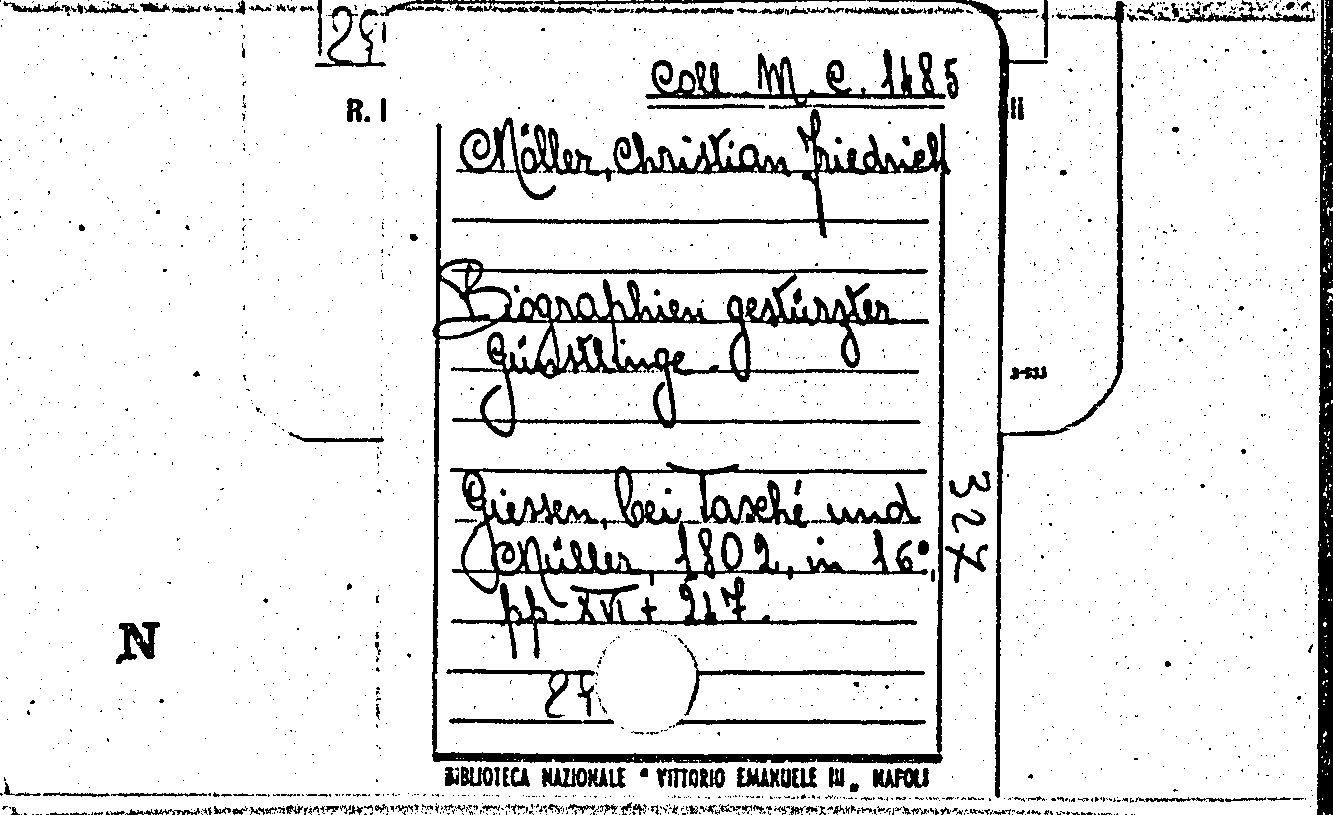 29
R. I
Coll. M. C. 1485
Möller, Christian Friedrich
Biographien gestürzter
Günstlinge.
Giessen, bei Tasché und
Müller, 1802, in 16º,
pp. XVI + 217.
29
327
N
BIBLIOTECA NAZIONALE "VITTORIO EMANUELE III" NAPOLI